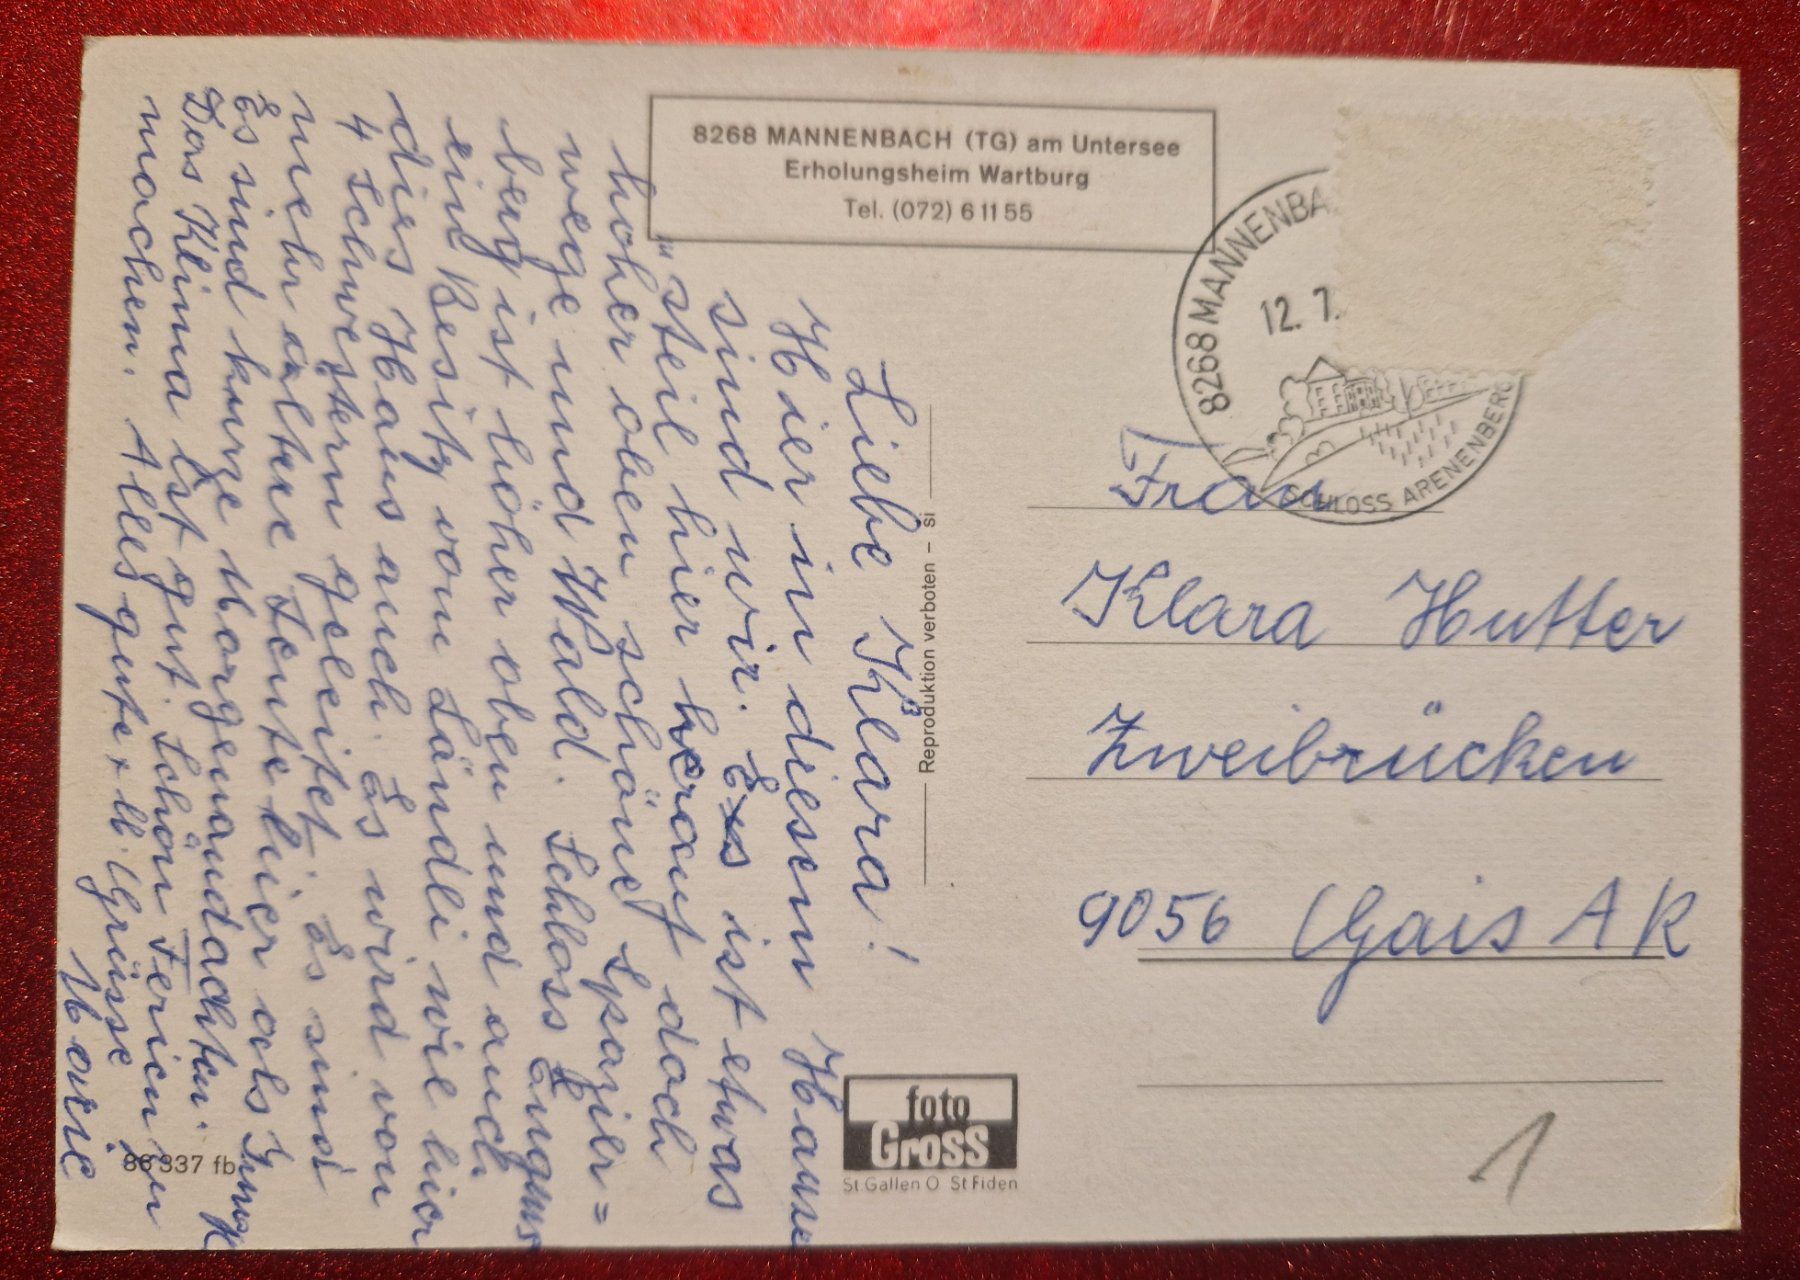 8268 MANNENBACH (TG) am Untersee
Erholungsheim Wartburg
Tel. (072) 6 11 55
Liebe Klara!
Hier in diesem Hause
sind wir. Es ist etwas
steil hier herauf doch
höher oben schöne Spazier=
wege und Wald. Schloss
berg ist höher oben und auch
ein Besitz vom Ländli wie hier
dies Haus auch. Es wird von
4 Schwestern geleitet. Es sind
mehr ältere Leute hier als
Es sind kurze Morgenandachten.
Das Klima ist gut. Schön Ferien zu
machen. Alles gute + Grüsse
Marie
Reproduktion verboten – si
8268 MANNENBA
12. 7.
SCHLOSS ARENENBERG
Frau
Klara Hutter
Zweibrücken
9056 Gais AR
foto
Gross
St.Gallen O St Fiden
86 337 fb
1